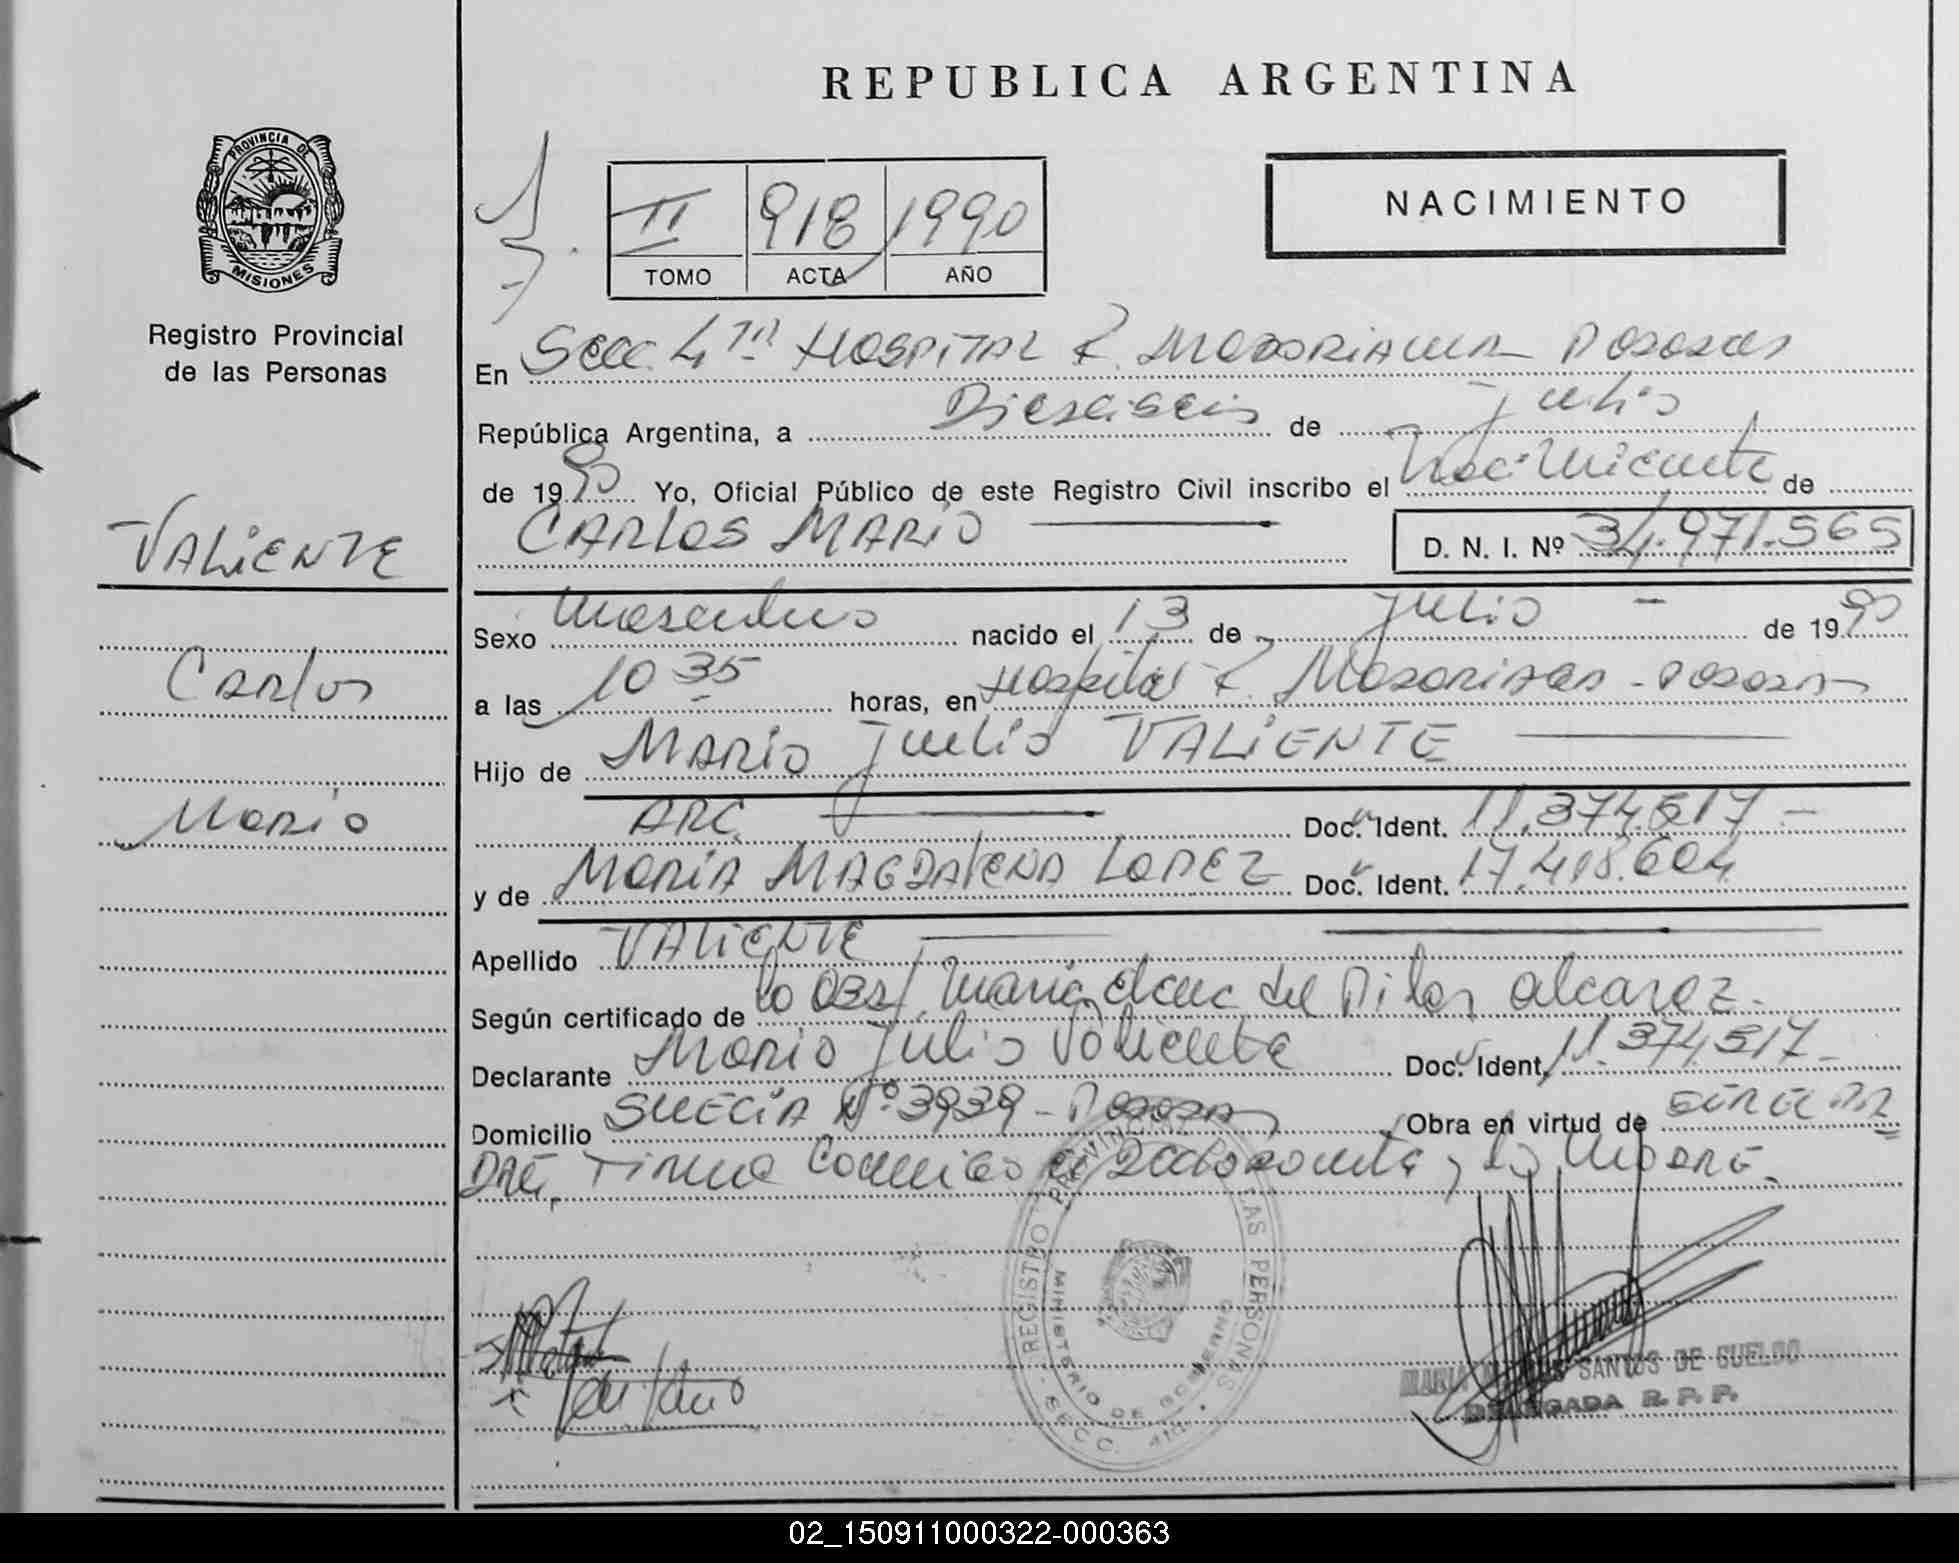 REPUBLICA ARGENTINA
PROVINCIA DE
MISIONES
Registro Provincial
de las Personas
II 918 1990
TOMO ACTA AÑO
NACIMIENTO
En Secc. 4ta HOSPITAL R. MADARIAGA Posadas
República Argentina, a Dieciseis de Julio
de 1990 Yo, Oficial Público de este Registro Civil inscribo el Nacimiento de
VALIENTE
CARLOS MARIO
D. N. I. Nº 34.971.565
Sexo Masculino nacido el 13 de Julio de 1990
Carlos
a las 10 35 horas, en Hospital R. Madariaga - Posadas
Hijo de MARIO Julio VALIENTE
Mario
ARG. Doc. Ident. 11.374.517
y de MARIA MAGDALENA LOPEZ Doc. Ident. 17.418.604
Apellido VALIENTE
Según certificado de la Obst. Maria del Pilar Alcaraz
Declarante Mario Julio Valiente Doc. Ident. 11.374.517
Domicilio SUECIA Nº 3939 - Posadas Obra en virtud de
Firma Conmigo el Declarante y la Madre.
REGISTRO PROVINCIAL DE LAS PERSONAS
MINISTERIO DE GOBIERNO
SECC. 4ta.
SANTOS DE SUELDO
DELEGADA R. P. P.
02_150911000322-000363